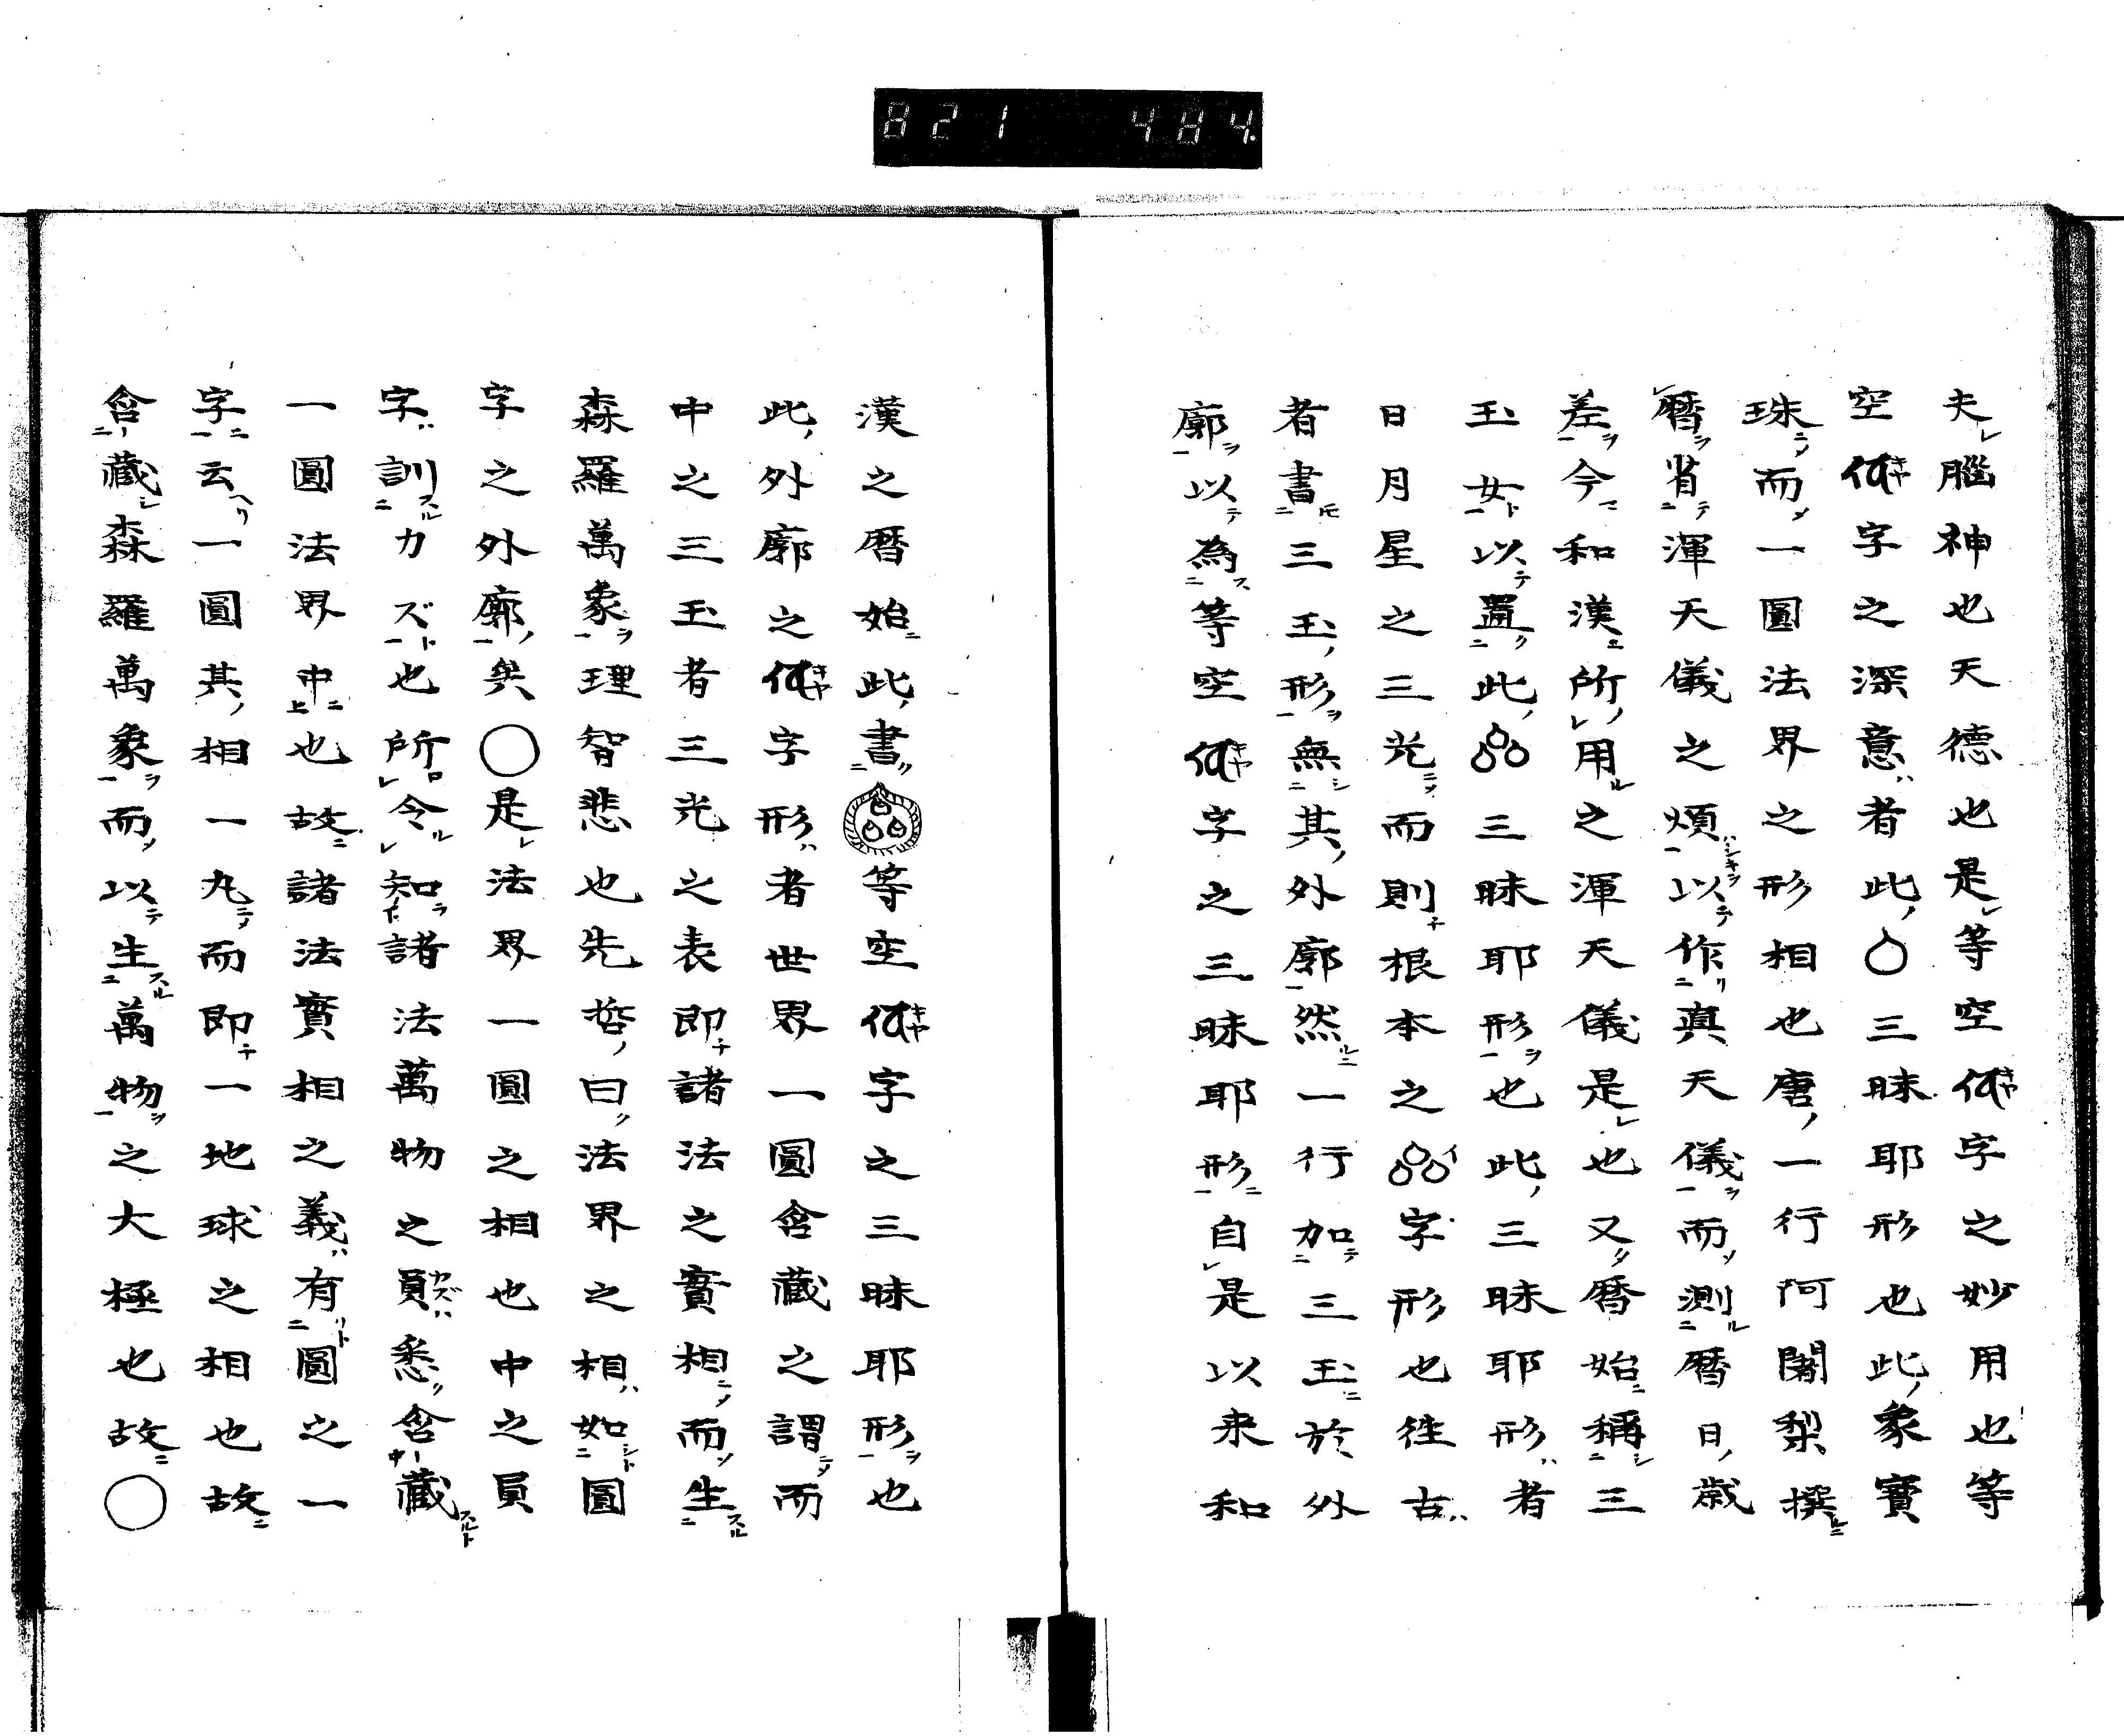 821 484.
夫レ腦神也天德也是レ等空𑖎字之妙用也等
空𑖎字之深意ハ者此ノ〇三昧耶形也此ノ象寶
珠ニメ而メ一圓法界之形相也唐ノ一行阿闍梨撰レニ
暦ヲ省テ渾天儀之煩ハシキヲ以テ作リ真天儀ヲ而メ測ル暦日ノ歳
差ヲ今マ和漢ニ所ノ用ル之渾天儀是レ也又タ暦始ニ稱シ三
玉女ト以テ置ク此ノ三昧耶形ヲ也此ノ三昧耶形ハ者
日月星之三光ニメ而則チ根本之イ字形也往古ハ
者書モ三玉ノ形ヲ無シ其ノ外廓然ルニ一行加テ三玉ニ於外
廓ヲ以テ為ス等空𑖎字之三昧耶形ニ自是以来和
漢之暦始ニ此ノ書ク等空𑖎字之三昧耶形ヲ也
此ノ外廓之𑖎字形ハ者世界一圓含藏之謂ニメ而
中之三玉者三光之表即チ諸法之實相ニメ而メ生スル
森羅萬象ヲ理智悲也先哲ノ曰ク法界之相ハ如シト圓
字之外廓ノ矣〇是レ法界一圓之相也中之員
字ハ訓スルカズト也所ロ令ル知ラ諸法萬物之員カズハ悉ク含藏スルト
一圓法界中ニ也故ニ諸法實相之義ハ有リト圓之一
字ニ云ヘリ一圓其ノ相一丸ニメ而即チ一地球之相也故ニ
含藏シ森羅萬象ヲ而メ以テ生スル萬物ヲ之大極也故ニ〇